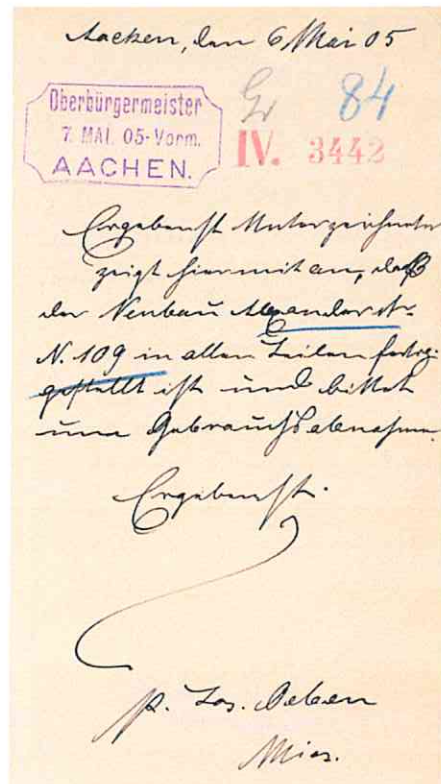 Aachen, den 6 Mai 05
Oberbürgermeister
7. MAI. 05-Vorm.
AACHEN.
Gr 84
IV. 3442
Ergebenst Unterzeichneter
zeigt hiermit an, daß
der Neubau Alexanderstr
N. 109 in allen Teilen fertig
gestellt ist und bittet
um Gebrauchsabnahme.
Ergebenst.
p. Jos. Oeben
Mies.